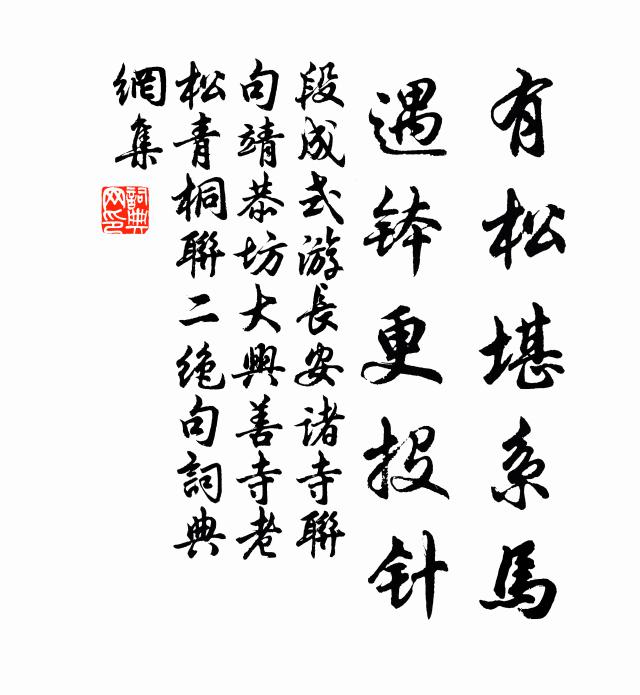 有松堪系馬
遇钵更投针
段成式游長安诸寺聯
句靖恭坊大興善寺老
松青桐聯二绝句詞典
網集
詞典网印